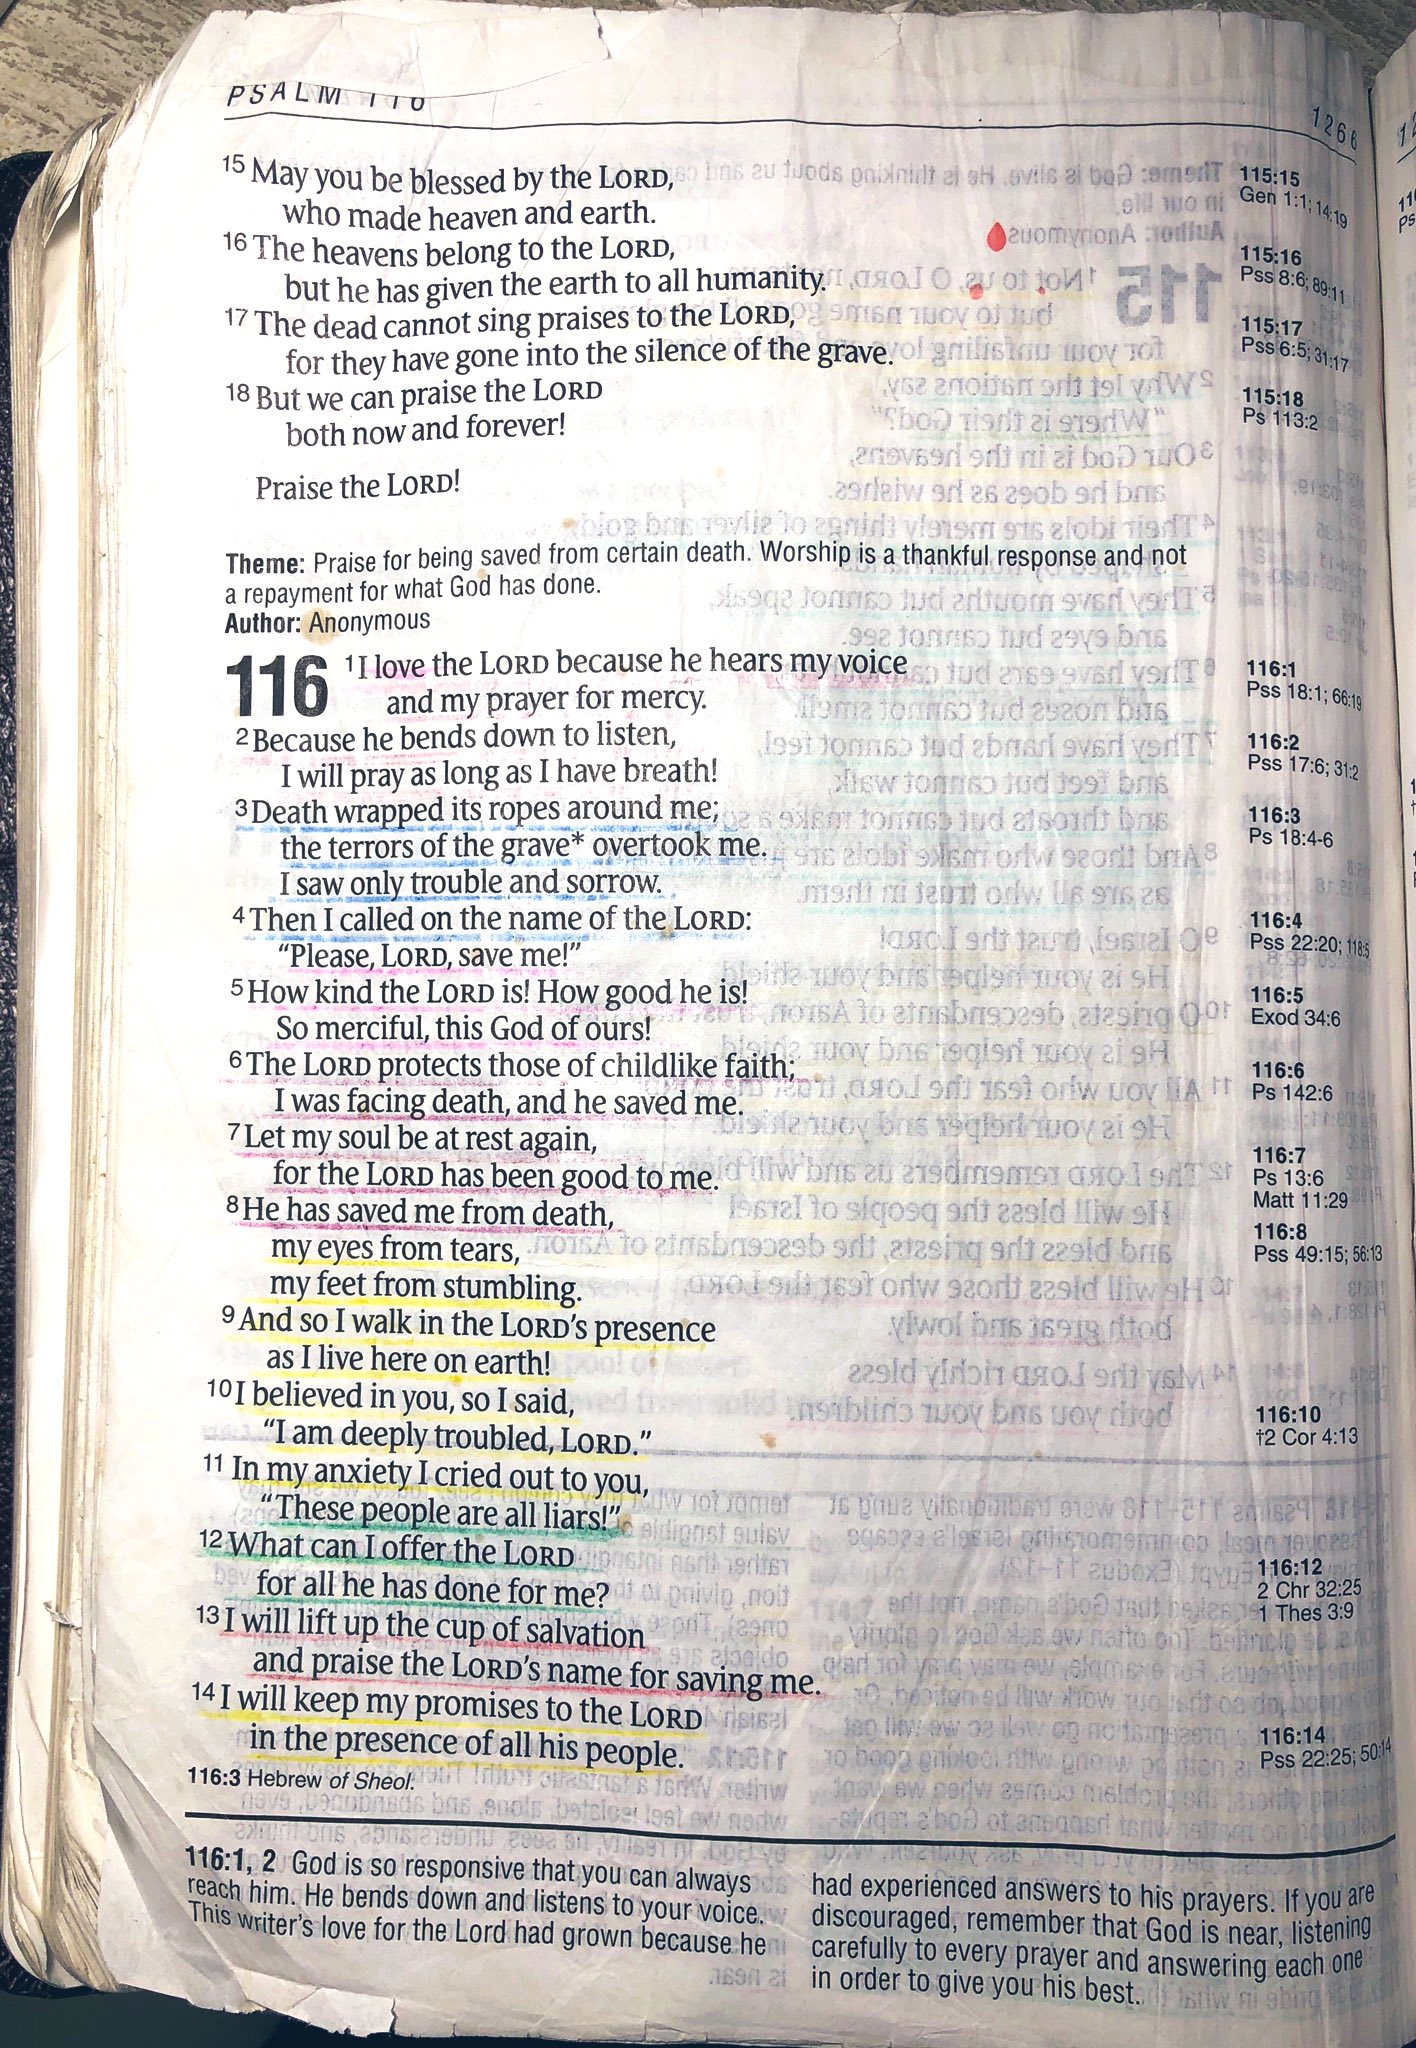 PSALM 116
1266
15 May you be blessed by the LORD,
who made heaven and earth.
16 The heavens belong to the LORD,
but he has given the earth to all humanity.
17 The dead cannot sing praises to the LORD,
for they have gone into the silence of the grave.
18 But we can praise the LORD
both now and forever!
Praise the LORD!
115:15
Gen 1:1; 14:19
115:16
Pss 8:6; 89:11
115:17
Pss 6:5; 31:17
115:18
Ps 113:2
Theme: Praise for being saved from certain death. Worship is a thankful response and not
a repayment for what God has done.
Author: Anonymous
116 1 I love the LORD because he hears my voice
and my prayer for mercy.
2 Because he bends down to listen,
I will pray as long as I have breath!
3 Death wrapped its ropes around me;
the terrors of the grave* overtook me.
I saw only trouble and sorrow.
4 Then I called on the name of the LORD:
“Please, LORD, save me!”
5 How kind the LORD is! How good he is!
So merciful, this God of ours!
6 The LORD protects those of childlike faith;
I was facing death, and he saved me.
7 Let my soul be at rest again,
for the LORD has been good to me.
8 He has saved me from death,
my eyes from tears,
my feet from stumbling.
9 And so I walk in the LORD’s presence
as I live here on earth!
10 I believed in you, so I said,
“I am deeply troubled, LORD.”
11 In my anxiety I cried out to you,
“These people are all liars!”
12 What can I offer the LORD
for all he has done for me?
13 I will lift up the cup of salvation
and praise the LORD’s name for saving me.
14 I will keep my promises to the LORD
in the presence of all his people.
116:1
Pss 18:1; 66:19
116:2
Pss 17:6; 31:2
116:3
Ps 18:4-6
116:4
Pss 22:20; 118:5
116:5
Exod 34:6
116:6
Ps 142:6
116:7
Ps 13:6
Matt 11:29
116:8
Pss 49:15; 56:13
116:10
†2 Cor 4:13
116:12
2 Chr 32:25
1 Thes 3:9
116:14
Pss 22:25; 50:14
116:3 Hebrew of Sheol.
116:1, 2 God is so responsive that you can always
reach him. He bends down and listens to your voice.
This writer’s love for the Lord had grown because he
had experienced answers to his prayers. If you are
discouraged, remember that God is near, listening
carefully to every prayer and answering each one
in order to give you his best.